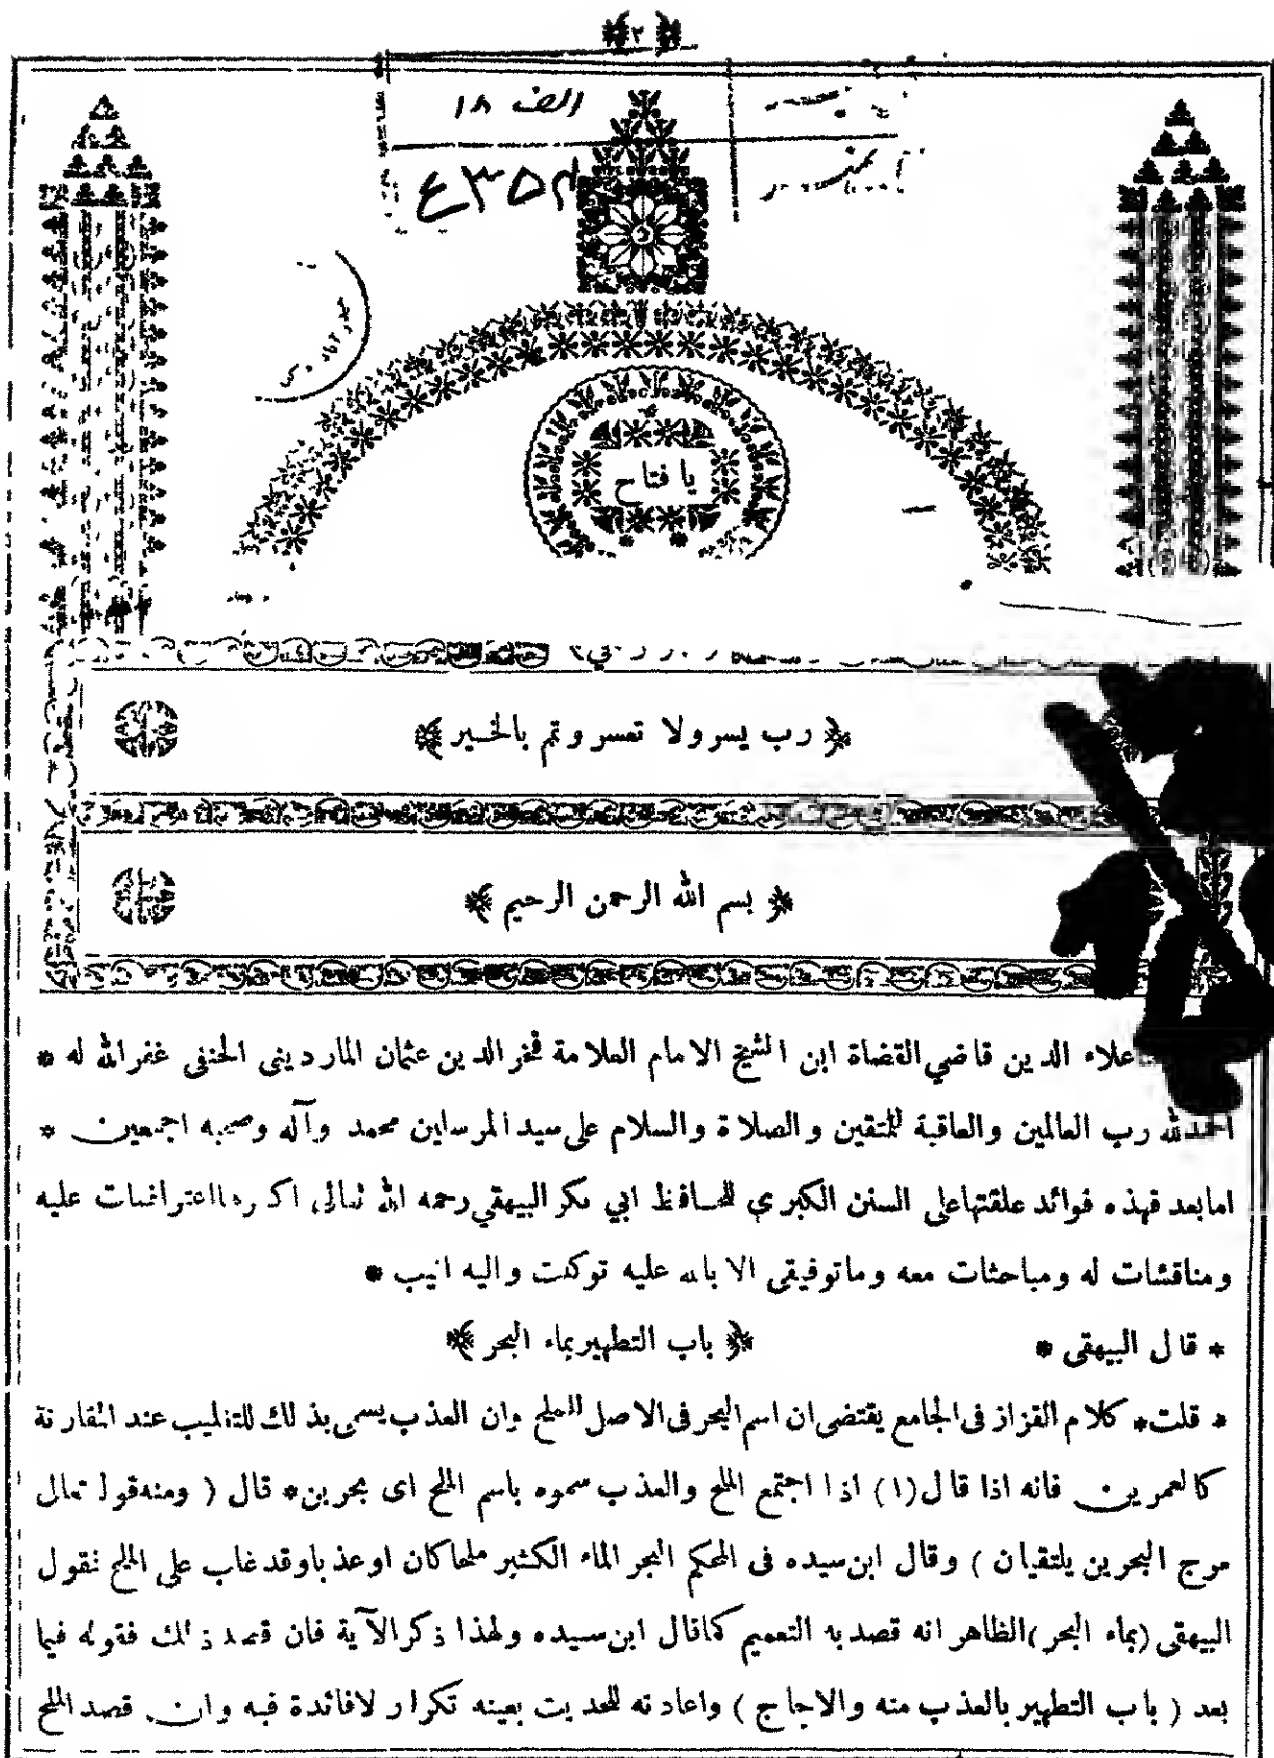 ﴿٢﴾
الف ١٨
يا فتاح
﴿ رب يسر ولا تعسر و تمم بالخير ﴾
﴿ بسم الله الرحمن الرحيم ﴾
علاء الدين قاضي القضاة ابن الشيخ الامام العلامة فخر الدين عثمان المارديني الحنفى غفر الله له *
الحمد لله رب العالمين والعاقبة للمتقين و الصلاة و السلام على سيد المرسلين محمد وآله وصحبه اجمعين *
امابعد فهذه فوائد علقتها على السنن الكبرى للحافظ ابي بكر البيهقي رحمه الله تعالى اكثرها اعتراضات عليه
ومناقشات له ومباحثات معه وماتوفيقى الا بالله عليه توكلت واليه انيب *
* قال البيهقى * ﴿ باب التطهير بماء البحر ﴾
* قلت * كلام القزاز فى الجامع يقتضى ان اسم البحر فى الاصل للملح وان العذب يسمى بذلك للتغليب عند المقارنة
كالعمرين فانه اذا قال (١) اذا اجتمع الملح والعذب سموه باسم الملح اى بحرين * قال ( ومنه قوله تعالى
مرج البحرين يلتقيان ) وقال ابن سيده فى المحكم البحر الماء الكثير ملحا كان او عذبا وقد غلب على الملح فقول
البيهقى (بماء البحر) الظاهر انه قصد به التعميم كما قال ابن سيده ولهذا ذكر الآية فان قصد ذلك فقوله فيما
بعد ( باب التطهير بالعذب منه والاجاج ) واعادته للحديث بعينه تكرار لا فائدة فيه وان قصد الملح